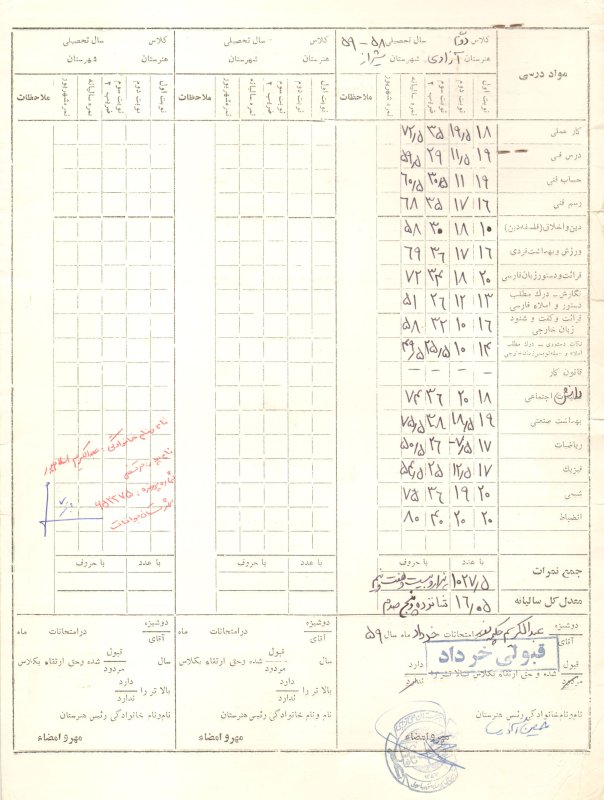 مواد درسی
کلاس دوم سال تحصیلی ۵۸ - ۵۹
هنرستان آزادی شهرستان شیراز
نوبت اول نوبت دوم نوبت سوم ضریب ۲ نمره سالیانه نمره شهریور ملاحظات
کلاس سال تحصیلی
هنرستان شهرستان
نوبت اول نوبت دوم نوبت سوم ضریب ۲ نمره سالیانه نمره شهریور ملاحظات
کلاس سال تحصیلی
هنرستان شهرستان
نوبت اول نوبت دوم نوبت سوم ضریب ۲ نمره سالیانه نمره شهریور ملاحظات
کار عملی ۱۸ ۱۹/۵ ۳۵ ۷۲/۵
درس فنی ۱۹ ۱۱/۵ ۲۹ ۵۹/۵
حساب فنی ۱۹ ۱۱ ۳۰/۵ ۶۰/۵
رسم فنی ۱۶ ۱۷ ۳۵ ۶۸
دین و اخلاق (فلسفه دین) ۱۰ ۱۸ ۳۰ ۵۸
ورزش و بهداشت فردی ۱۶ ۱۷ ۳۶ ۶۹
قرائت و دستور زبان فارسی ۲۰ ۱۸ ۳۴ ۷۲
نگارش - درک مطلب
دستور و املاء فارسی ۱۳ ۱۲ ۲۶ ۵۱
قرائت و گفت و شنود
زبان خارجی ۱۶ ۱۰ ۳۲ ۵۸
نکات دستوری - درک مطلب
املاء و جمله نویسی زبان خارجی ۱۴ ۱۰ ۲۵/۵ ۴۹/۵
قانون کار - - - -
دانش اجتماعی ۱۸ ۲۰ ۳۶ ۷۴
بهداشت صنعتی ۱۹ ۱۸/۵ ۳۸ ۷۵/۵
ریاضیات ۱۷ ۷/۵ ۲۶ ۵۰/۵
فیزیک ۱۷ ۱۲/۵ ۲۵ ۵۴/۵
شیمی ۲۰ ۱۹ ۳۶ ۷۵
انضباط ۲۰ ۲۰ ۴۰ ۸۰
نام پدر
کلاس
با عدد با حروف
با عدد با حروف
با عدد با حروف
جمع نمرات ۱۰۲۷/۵ هزار و بیست و هفت و نیم
معدل کل سالیانه ۱۶/۰۵ شانزده و پنج صدم
دوشیزه
آقای عبدالکریم در امتحانات خرداد ماه سال ۵۹
قبولی خرداد
قبول
مردود شده و حق ارتقاء بکلاس بالاتر را دارد
ندارد
نام و نام خانوادگی رئیس هنرستان
مهر و امضاء
دوشیزه
آقای در امتحانات ماه
سال قبول
مردود شده و حق ارتقاء بکلاس
بالاتر را دارد
ندارد
نام و نام خانوادگی رئیس هنرستان
مهر و امضاء
دوشیزه
آقای در امتحانات ماه
سال قبول
مردود شده و حق ارتقاء بکلاس
بالاتر را دارد
ندارد
نام و نام خانوادگی رئیس هنرستان
مهر و امضاء